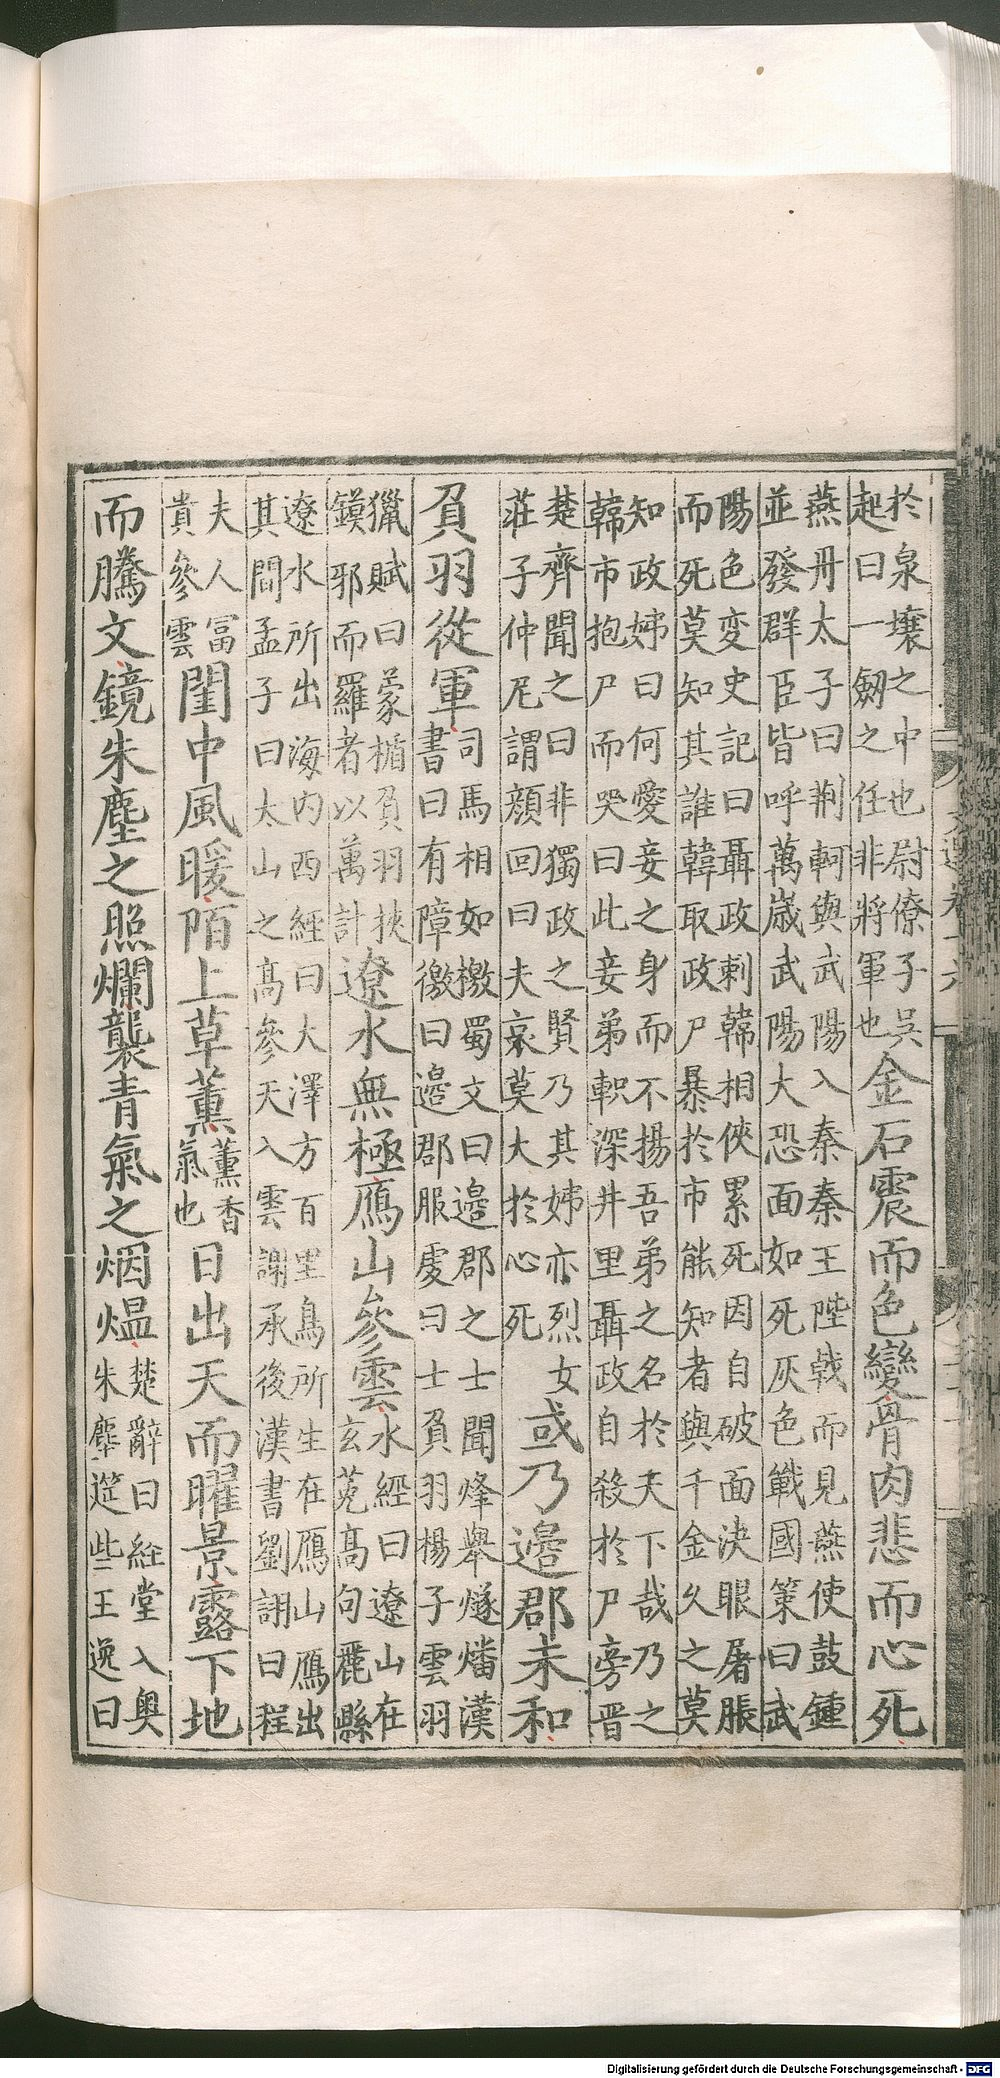 於泉壤之中也尉僚子吳
起曰一劒之任非將軍也金石震而色變骨肉悲而心死
燕丹太子曰荆軻與武陽入秦秦王陛戟而見燕使鼓鍾
並發群臣皆呼萬歲武陽大恐面如死灰色戰國策曰武
陽色变史記曰聶政刺韓相俠累死因自破面決眼屠脹
而死莫知其誰韓取政尸暴於市能知者與千金久之莫
知政姊曰何愛妾之身而不揚吾弟之名於天下哉乃之
韓市抱尸而哭曰此妾弟軹深井里聶政自殺於尸旁晋
楚齊聞之曰非獨政之賢乃其姊亦烈女
莊子仲尼謂顔回曰夫哀莫大於心死或乃邉郡未和
負羽從軍司馬相如檄蜀文曰邉郡之士聞烽舉燧燔漢
書曰有障徼曰邉郡服虔曰士負羽楊子雲羽
獵賦曰蒙楯負羽挾
鏌邪而羅者以萬計遼水無極鴈山參雲水經曰遼山在
玄菟高句麗縣
遼水所出海内西經曰大澤方百里鳥所生在鴈山鴈出
其間孟子曰太山之高參天入雲謝承後漢書劉詡曰程
夫人冨
貴參雲閨中風暖陌上草薫薫香
氣也日出天而曜景露下地
而騰文鏡朱塵之照爛襲青氣之烟煴楚辭曰経堂入奥
朱塵筵些王逸曰
Digitalisierung gefördert durch die Deutsche Forschungsgemeinschaft - DFG